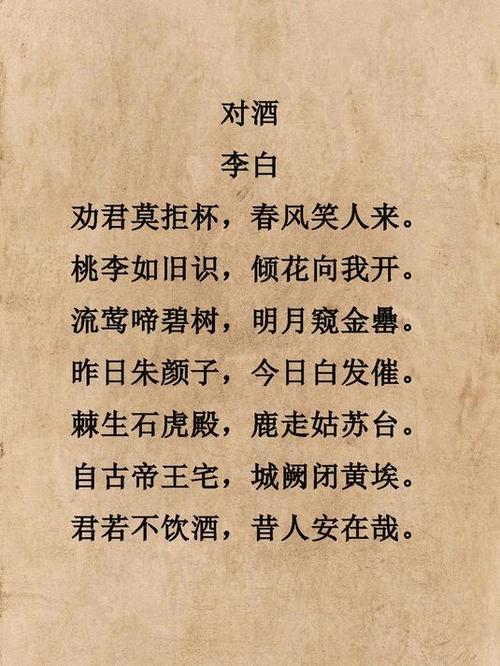 对酒
李白
劝君莫拒杯，春风笑人来。
桃李如旧识，倾花向我开。
流莺啼碧树，明月窥金罍。
昨日朱颜子，今日白发催。
棘生石虎殿，鹿走姑苏台。
自古帝王宅，城阙闭黄埃。
君若不饮酒，昔人安在哉。